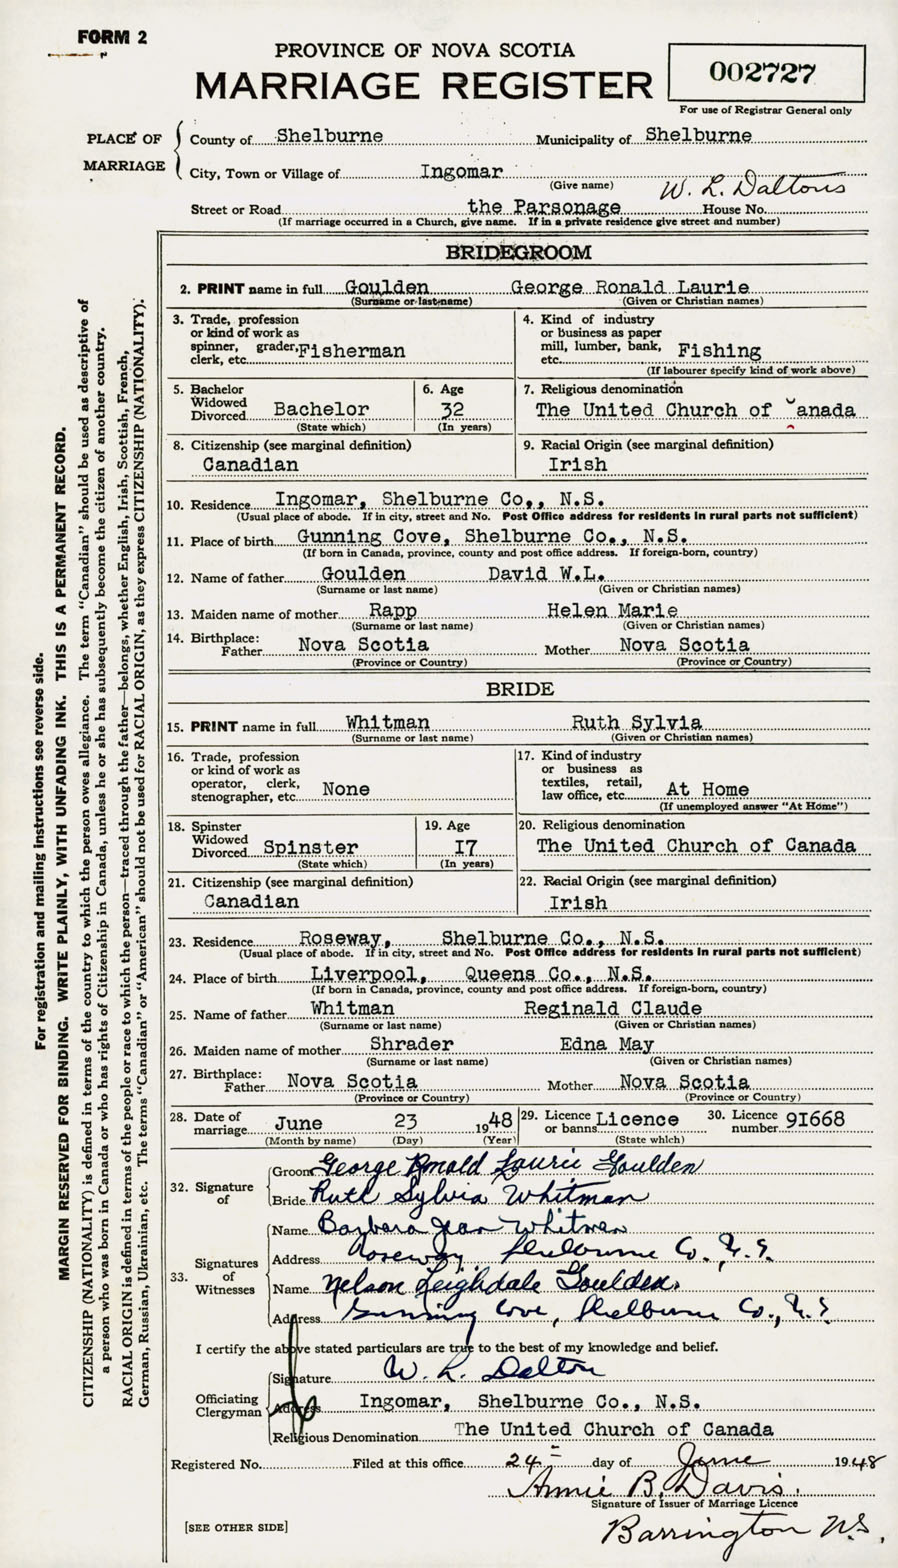 FORM 2
PROVINCE OF NOVA SCOTIA
MARRIAGE REGISTER
002727
For use of Registrar General only
PLACE OF MARRIAGE
County of Shelburne Municipality of Shelburne
City, Town or Village of Ingomar
(Give name)
W. L. Daltons
Street or Road the Parsonage House No.
(If marriage occurred in a Church, give name. If in a private residence give street and number)
BRIDEGROOM
2. PRINT name in full Goulden George Ronald Laurie
(Surname or last name) (Given or Christian names)
3. Trade, profession or kind of work as spinner, grader, clerk, etc. Fisherman
4. Kind of industry or business as paper mill, lumber, bank, etc. Fishing
(If labourer specify kind of work above)
5. Bachelor Widowed Divorced Bachelor
(State which)
6. Age 32
(In years)
7. Religious denomination
The United Church of Canada
8. Citizenship (see marginal definition)
Canadian
9. Racial Origin (see marginal definition)
Irish
10. Residence Ingomar, Shelburne Co., N.S.
(Usual place of abode. If in city, street and No. Post Office address for residents in rural parts not sufficient)
11. Place of birth Gunning Cove, Shelburne Co., N.S.
(If born in Canada, province, county and post office address. If foreign-born, country)
12. Name of father Goulden David W.L.
(Surname or last name) (Given or Christian names)
13. Maiden name of mother Rapp Helen Marie
(Surname or last name) (Given or Christian names)
14. Birthplace:
Father Nova Scotia Mother Nova Scotia
(Province or Country) (Province or Country)
BRIDE
15. PRINT name in full Whitman Ruth Sylvia
(Surname or last name) (Given or Christian names)
16. Trade, profession or kind of work as operator, clerk, stenographer, etc. None
17. Kind of industry or business as textiles, retail, law office, etc. At Home
(If unemployed answer "At Home")
18. Spinster Widowed Divorced Spinster
(State which)
19. Age I7
(In years)
20. Religious denomination
The United Church of Canada
21. Citizenship (see marginal definition)
Canadian
22. Racial Origin (see marginal definition)
Irish
23. Residence Roseway, Shelburne Co., N.S.
(Usual place of abode. If in city, street and No. Post Office address for residents in rural parts not sufficient)
24. Place of birth Liverpool, Queens Co., N.S.
(If born in Canada, province, county and post office address. If foreign-born, country)
25. Name of father Whitman Reginald Claude
(Surname or last name) (Given or Christian names)
26. Maiden name of mother Shrader Edna May
(Surname or last name) (Given or Christian names)
27. Birthplace:
Father Nova Scotia Mother Nova Scotia
(Province or Country) (Province or Country)
28. Date of marriage June 23 1948
(Month by name) (Day) (Year)
29. Licence or banns Licence
(State which)
30. Licence number 9I668
32. Signature of
Groom George Ronald Laurie Goulden
Bride Ruth Sylvia Whitman
33. Signatures of Witnesses
Name Barbara Jean Whitman
Address Roseway, Shelburne Co., N.S.
Name Nelson Leighdale Goulden
Address Gunning Cove, Shelburne Co., N.S
I certify the above stated particulars are true to the best of my knowledge and belief.
Officiating Clergyman
Signature W. L. Dalton
Address Ingomar, Shelburne Co., N.S.
Religious Denomination The United Church of Canada
Registered No. Filed at this office 24th day of June 1948
Annie B. Davis.
Signature of Issuer of Marriage Licence
Barrington N.S.
[SEE OTHER SIDE]
For registration and mailing instructions see reverse side.
MARGIN RESERVED FOR BINDING. WRITE PLAINLY, WITH UNFADING INK. THIS IS A PERMANENT RECORD.
CITIZENSHIP (NATIONALITY) is defined in terms of the country to which the person owes allegiance. The term "Canadian" should be used as descriptive of
a person who was born in Canada or who has rights of Citizenship in Canada, unless he or she has subsequently become the citizen of another country.
RACIAL ORIGIN is defined in terms of the people or race to which the person—traced through the father—belongs, whether English, Irish, Scottish, French,
German, Russian, Ukrainian, etc. The terms "Canadian" or "American" should not be used for RACIAL ORIGIN, as they express CITIZENSHIP (NATIONALITY).